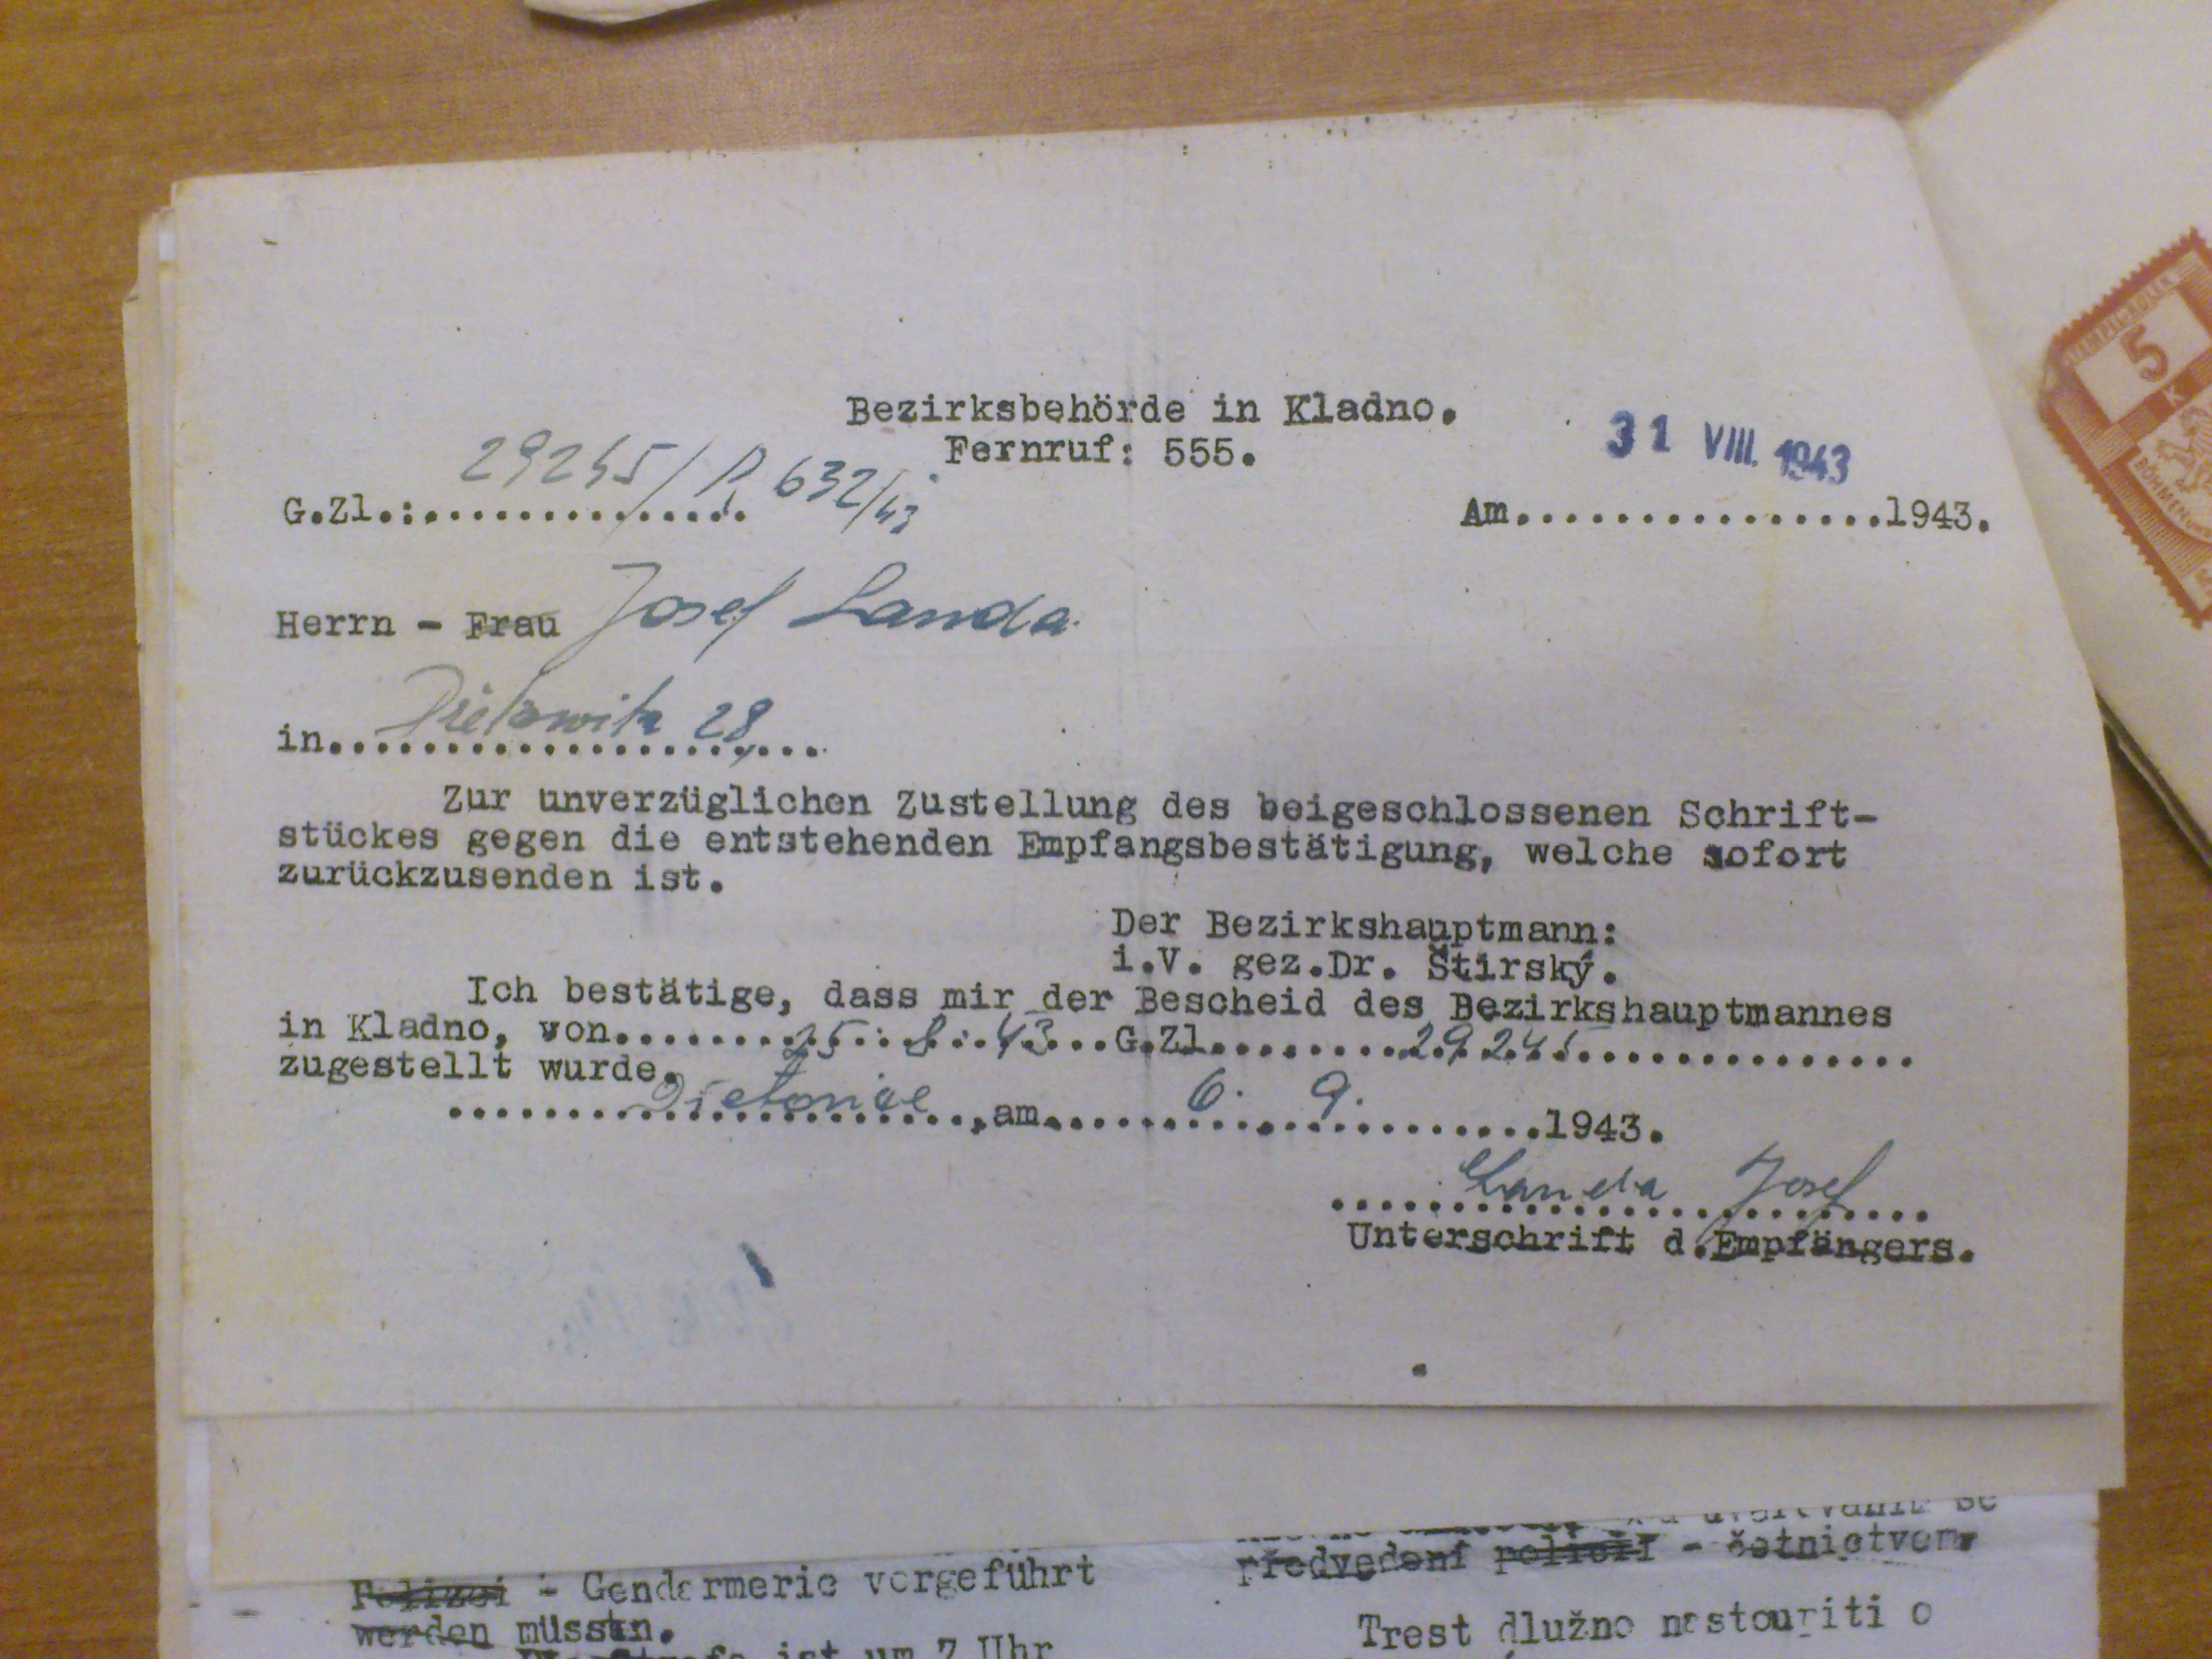 Bezirksbehörde in Kladno.
Fernruf: 555.
31 VIII. 1943
G.Zl.:............... 29245/ 632/43
Am................1943.
Herrn - Frau Josef Landa
in.................... 28,
Zur unverzüglichen Zustellung des beigeschlossenen Schrift-
stückes gegen die entstehenden Empfangsbestätigung, welche sofort
zurückzusenden ist.
Der Bezirkshauptmann:
i.V. gez.Dr. Štirský.
Ich bestätige, dass mir der Bescheid des Bezirkshauptmannes
in Kladno, von........25. 8. 43...G.Zl.........29245...............
zugestellt wurde.
....................,am.....6. 9. ...........1943.
Landa Josef
Unterschrift d.Empfängers.
5
K
BÖHMEN
Polizei - Gendarmerie vorgeführt
werden müssten.
ist um 7 Uhr
se
předvedení policií - četnictvem.
Trest dlužno nastoupiti o